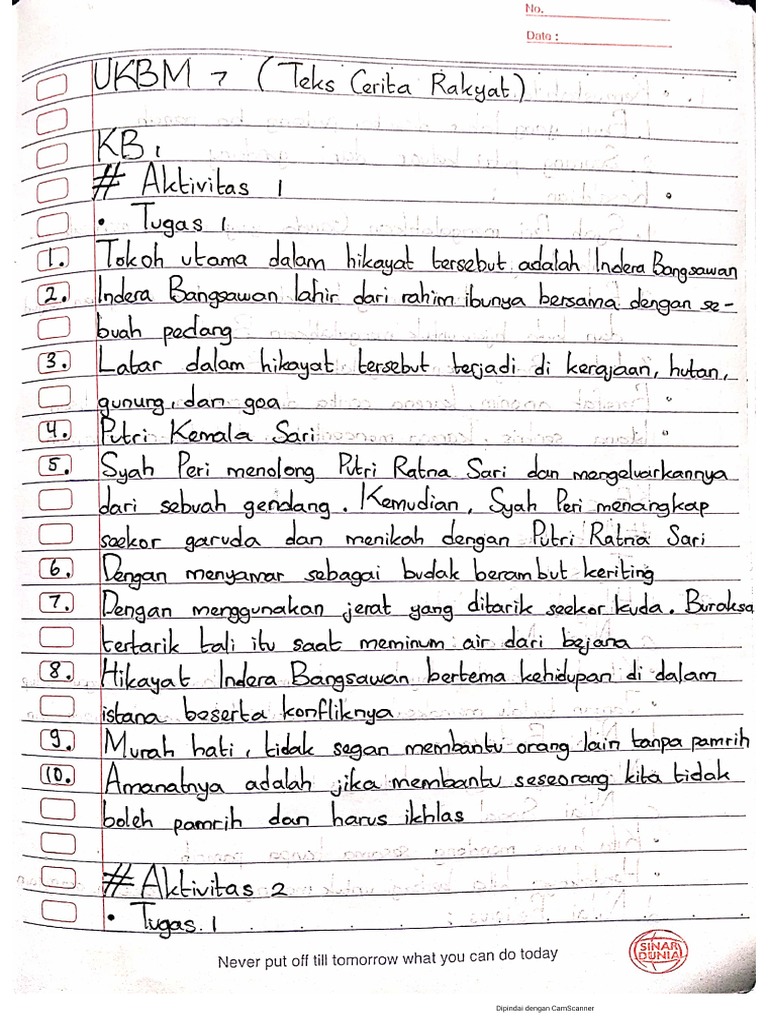 No.
Date :
UKBM 7 (Teks Cerita Rakyat)
KB 1
# Aktivitas 1
• Tugas 1
1. Tokoh utama dalam hikayat tersebut adalah Indera Bangsawan
2. Indera Bangsawan lahir dari rahim ibunya bersama dengan se-
buah pedang
3. Latar dalam hikayat tersebut terjadi di kerajaan, hutan,
gunung, dan goa
4. Putri Kemala Sari
5. Syah Peri menolong Putri Ratna Sari dan mengeluarkannya
dari sebuah gendang. Kemudian, Syah Peri menangkap
seekor garuda dan menikah dengan Putri Ratna Sari
6. Dengan menyamar sebagai budak berambut keriting
7. Dengan menggunakan jerat yang ditarik seekor kuda. Buraksa
tertarik tali itu saat meminum air dari bejana
8. Hikayat Indera Bangsawan bertema kehidupan di dalam
istana beserta konfliknya
9. Murah hati, tidak segan membantu orang lain tanpa pamrih
10. Amanatnya adalah jika membantu seseorang kita tidak
boleh pamrih dan harus ikhlas
# Aktivitas 2
• Tugas 1
Never put off till tomorrow what you can do today
SINAR
DUNIA
Dipindai dengan CamScanner